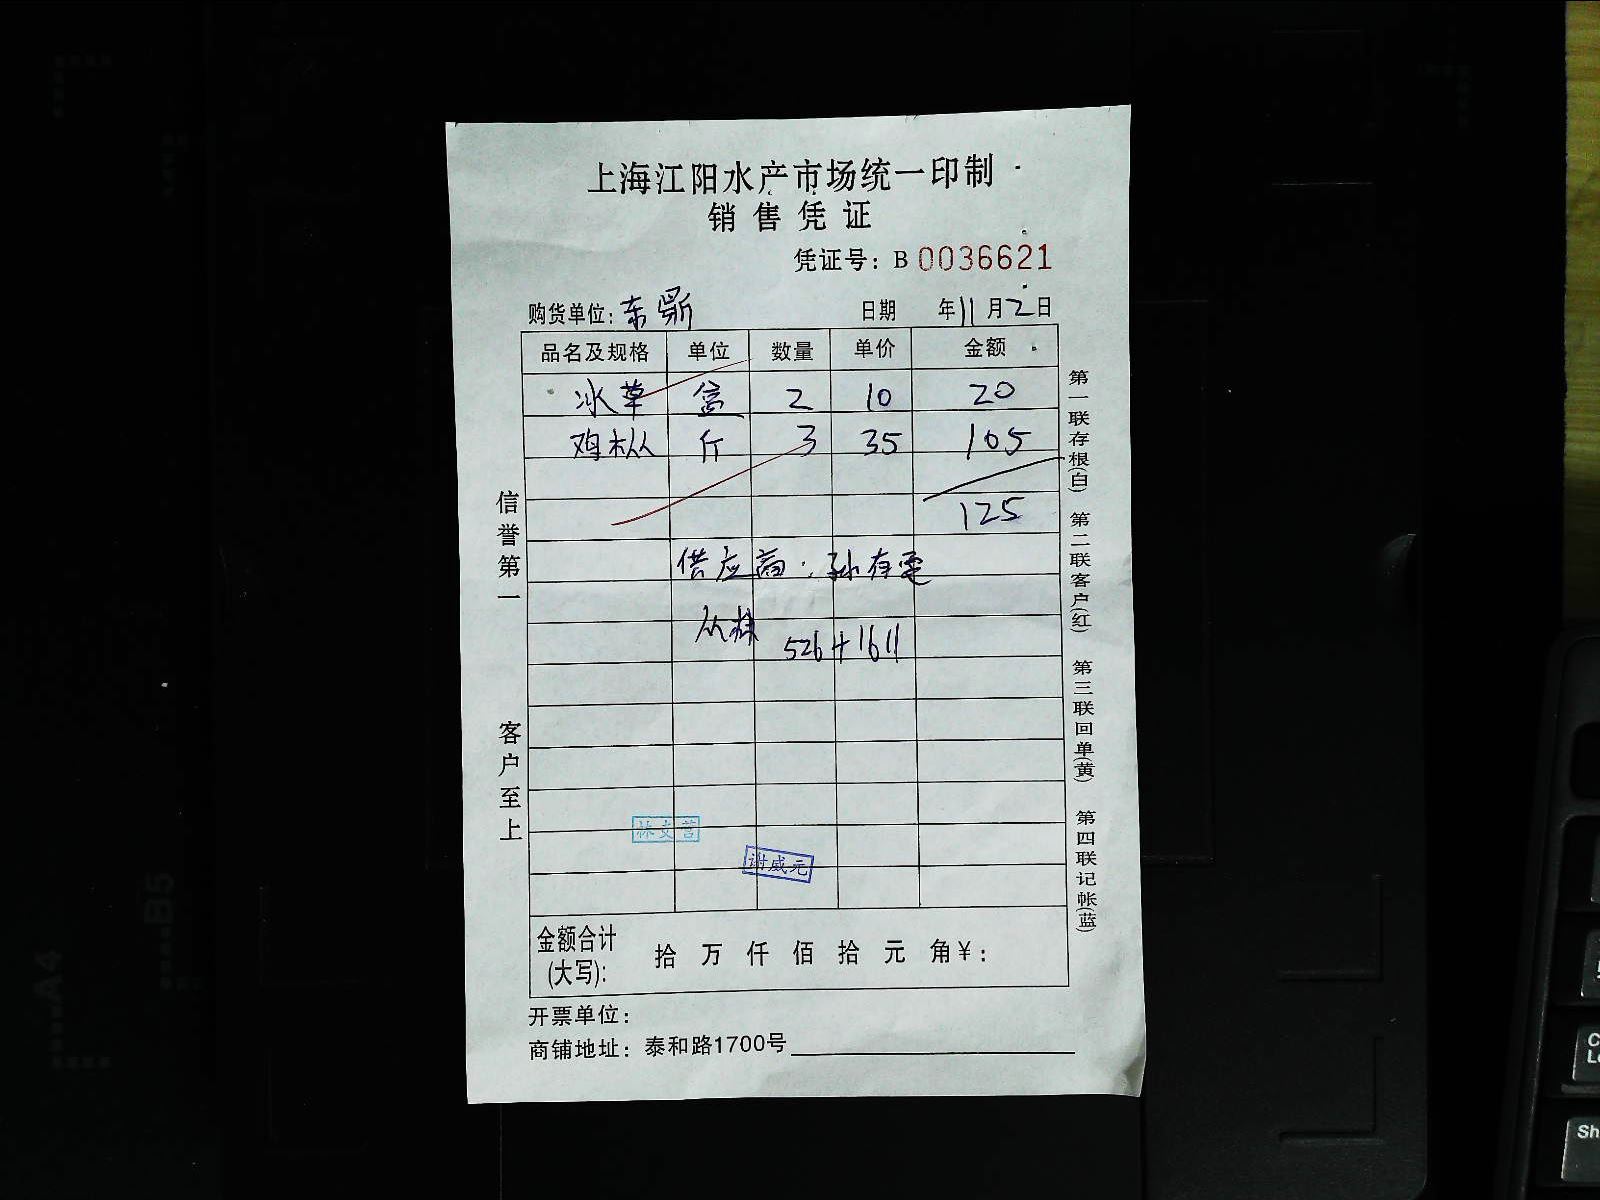 上海江阳水产市场统一印制
销售凭证
凭证号：B 0036621
购货单位：东 日期 年11月2日
品名及规格 单位 数量 单价 金额
冰草 盒 2 10 20
鸡枞 斤 3 35 105
125
供应商：孙存
526+1611
信誉第一
客户至上
第一联存根(白) 第二联客户(红) 第三联回单(黄) 第四联记帐(蓝)
林 营
谢威元
金额合计(大写)： 拾 万 仟 佰 拾 元 角¥：
开票单位：
商铺地址：泰和路1700号
B5
A4